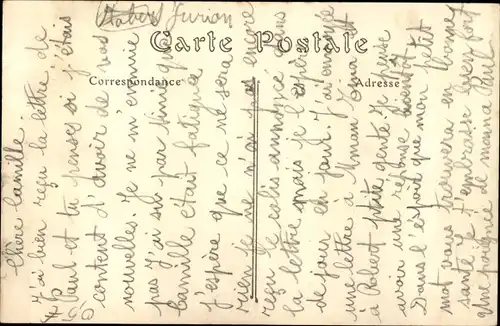 Robert Jurion
Carte Postale
Correspondance
Adresse
Chère Camille.
J'ai bien reçu la lettre de
Paul et tu penses si j'étais
content d'avoir de vos
nouvelles. Je ne m'ennuie
pas J'ai su par Lini que
Camille était fatigué
j'espère que ce ne sera
rien je ne n'ai pas encore
reçu le colis annoncé dans
la lettre mais je l'espère
de jour en jour. J'ai envoyé
une lettre à Maman et
à Robert plus gente je pense
avoir une réponse
Dans l'espoir que mon petit
mot vous trouvera en bonne
santé je t'embrasse bien fort
Une poignée de main à Paul